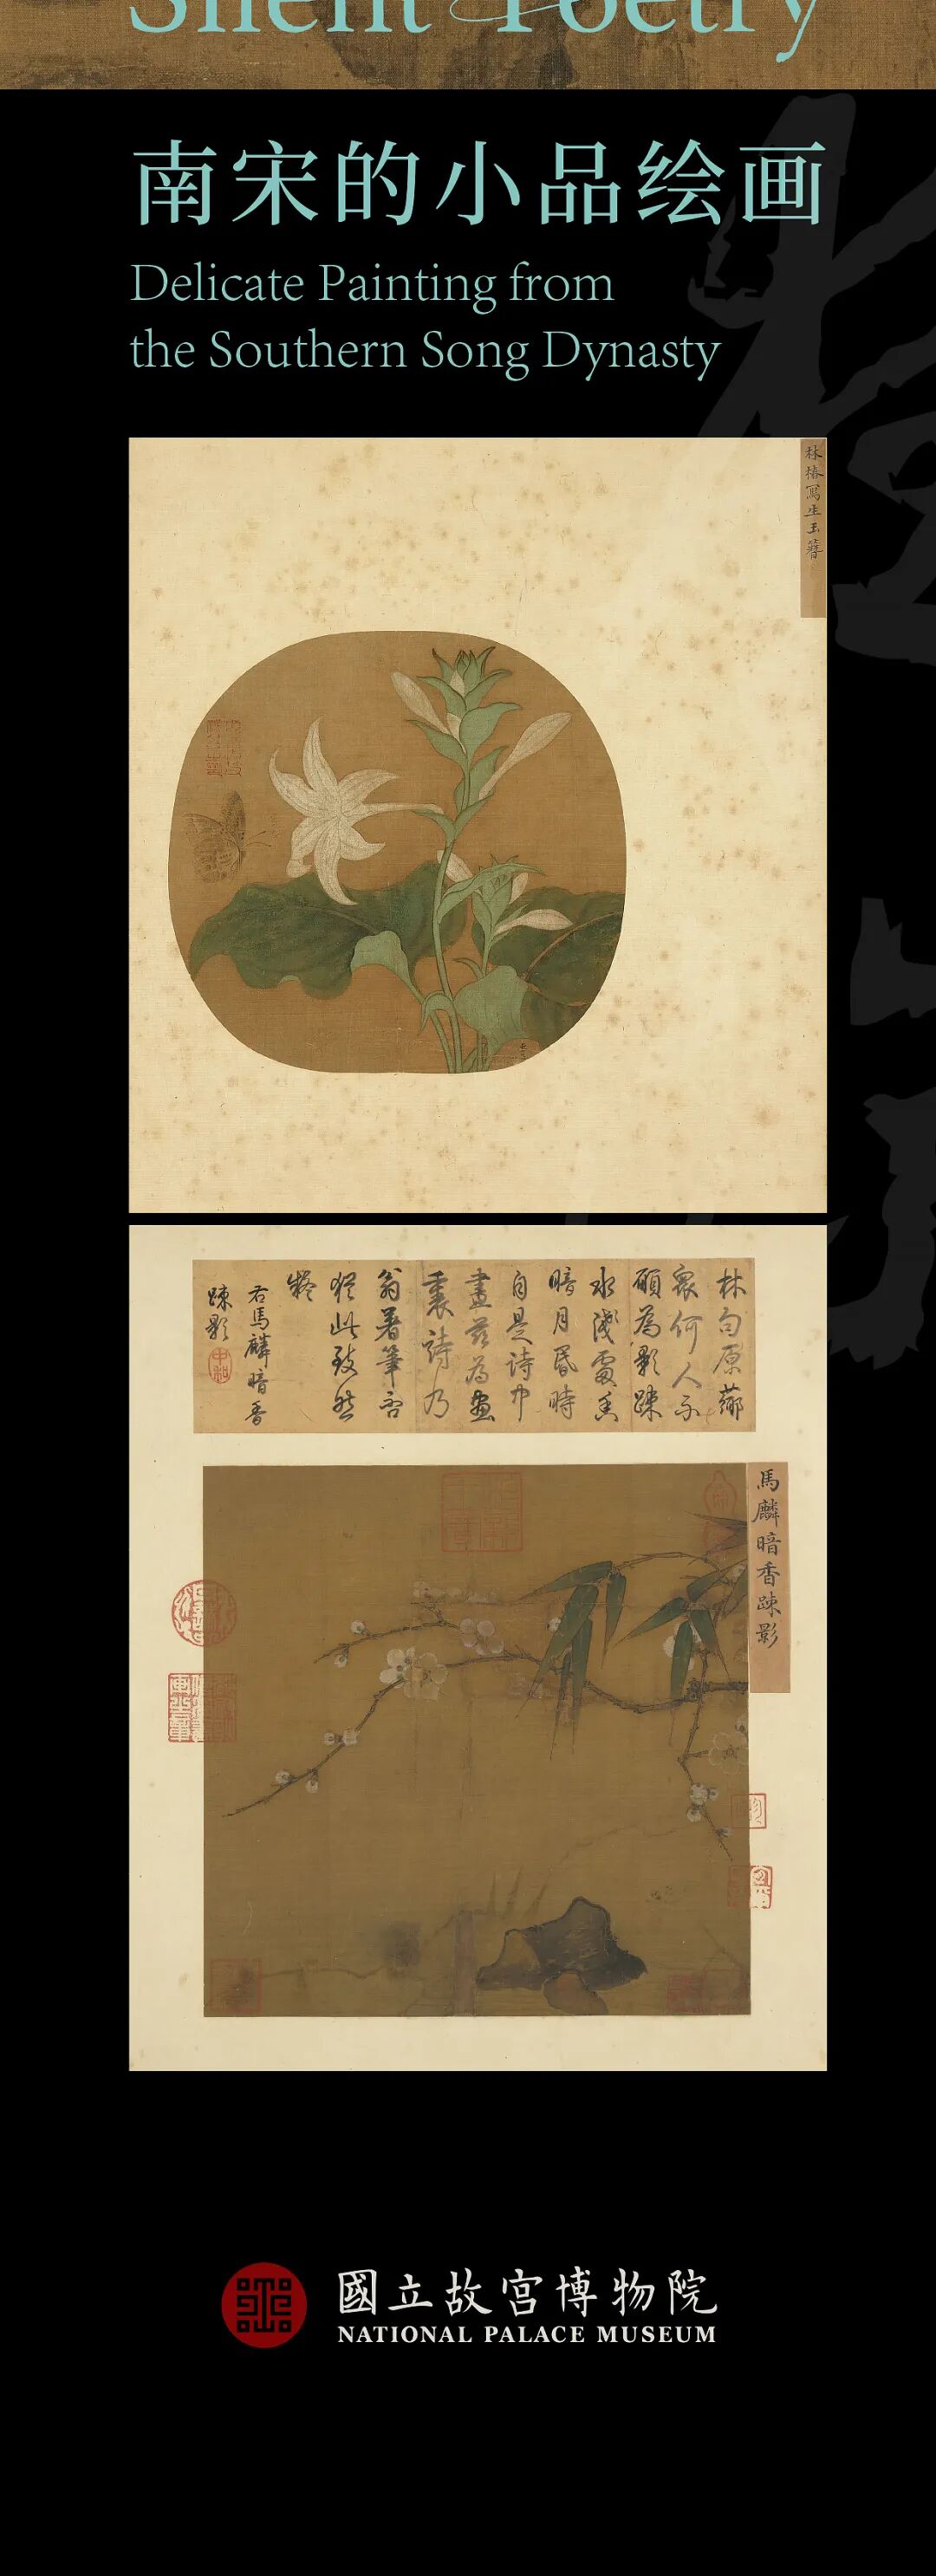 Silent Poetry
南宋的小品绘画
Delicate Painting from
the Southern Song Dynasty
林椿寫生玉簪
林句原
何人
願為影踈
水淺
暗月昏時
自是詩中
畫茲為畫
裏詩乃
翁著筆否
猶此致然
右馬麟暗香
踈影
中和
馬麟暗香踈影
國立故宮博物院
NATIONAL PALACE MUSEUM